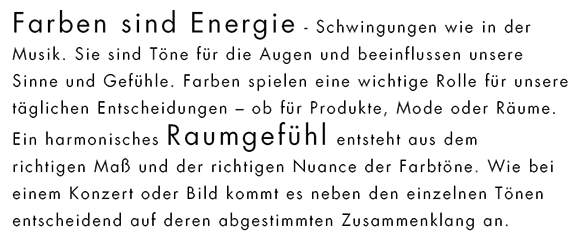 Farben sind Energie - Schwingungen wie in der
Musik. Sie sind Töne für die Augen und beeinflussen unsere
Sinne und Gefühle. Farben spielen eine wichtige Rolle für unsere
täglichen Entscheidungen – ob für Produkte, Mode oder Räume.
Ein harmonisches Raumgefühl entsteht aus dem
richtigen Maß und der richtigen Nuance der Farbtöne. Wie bei
einem Konzert oder Bild kommt es neben den einzelnen Tönen
entscheidend auf deren abgestimmten Zusammenklang an.